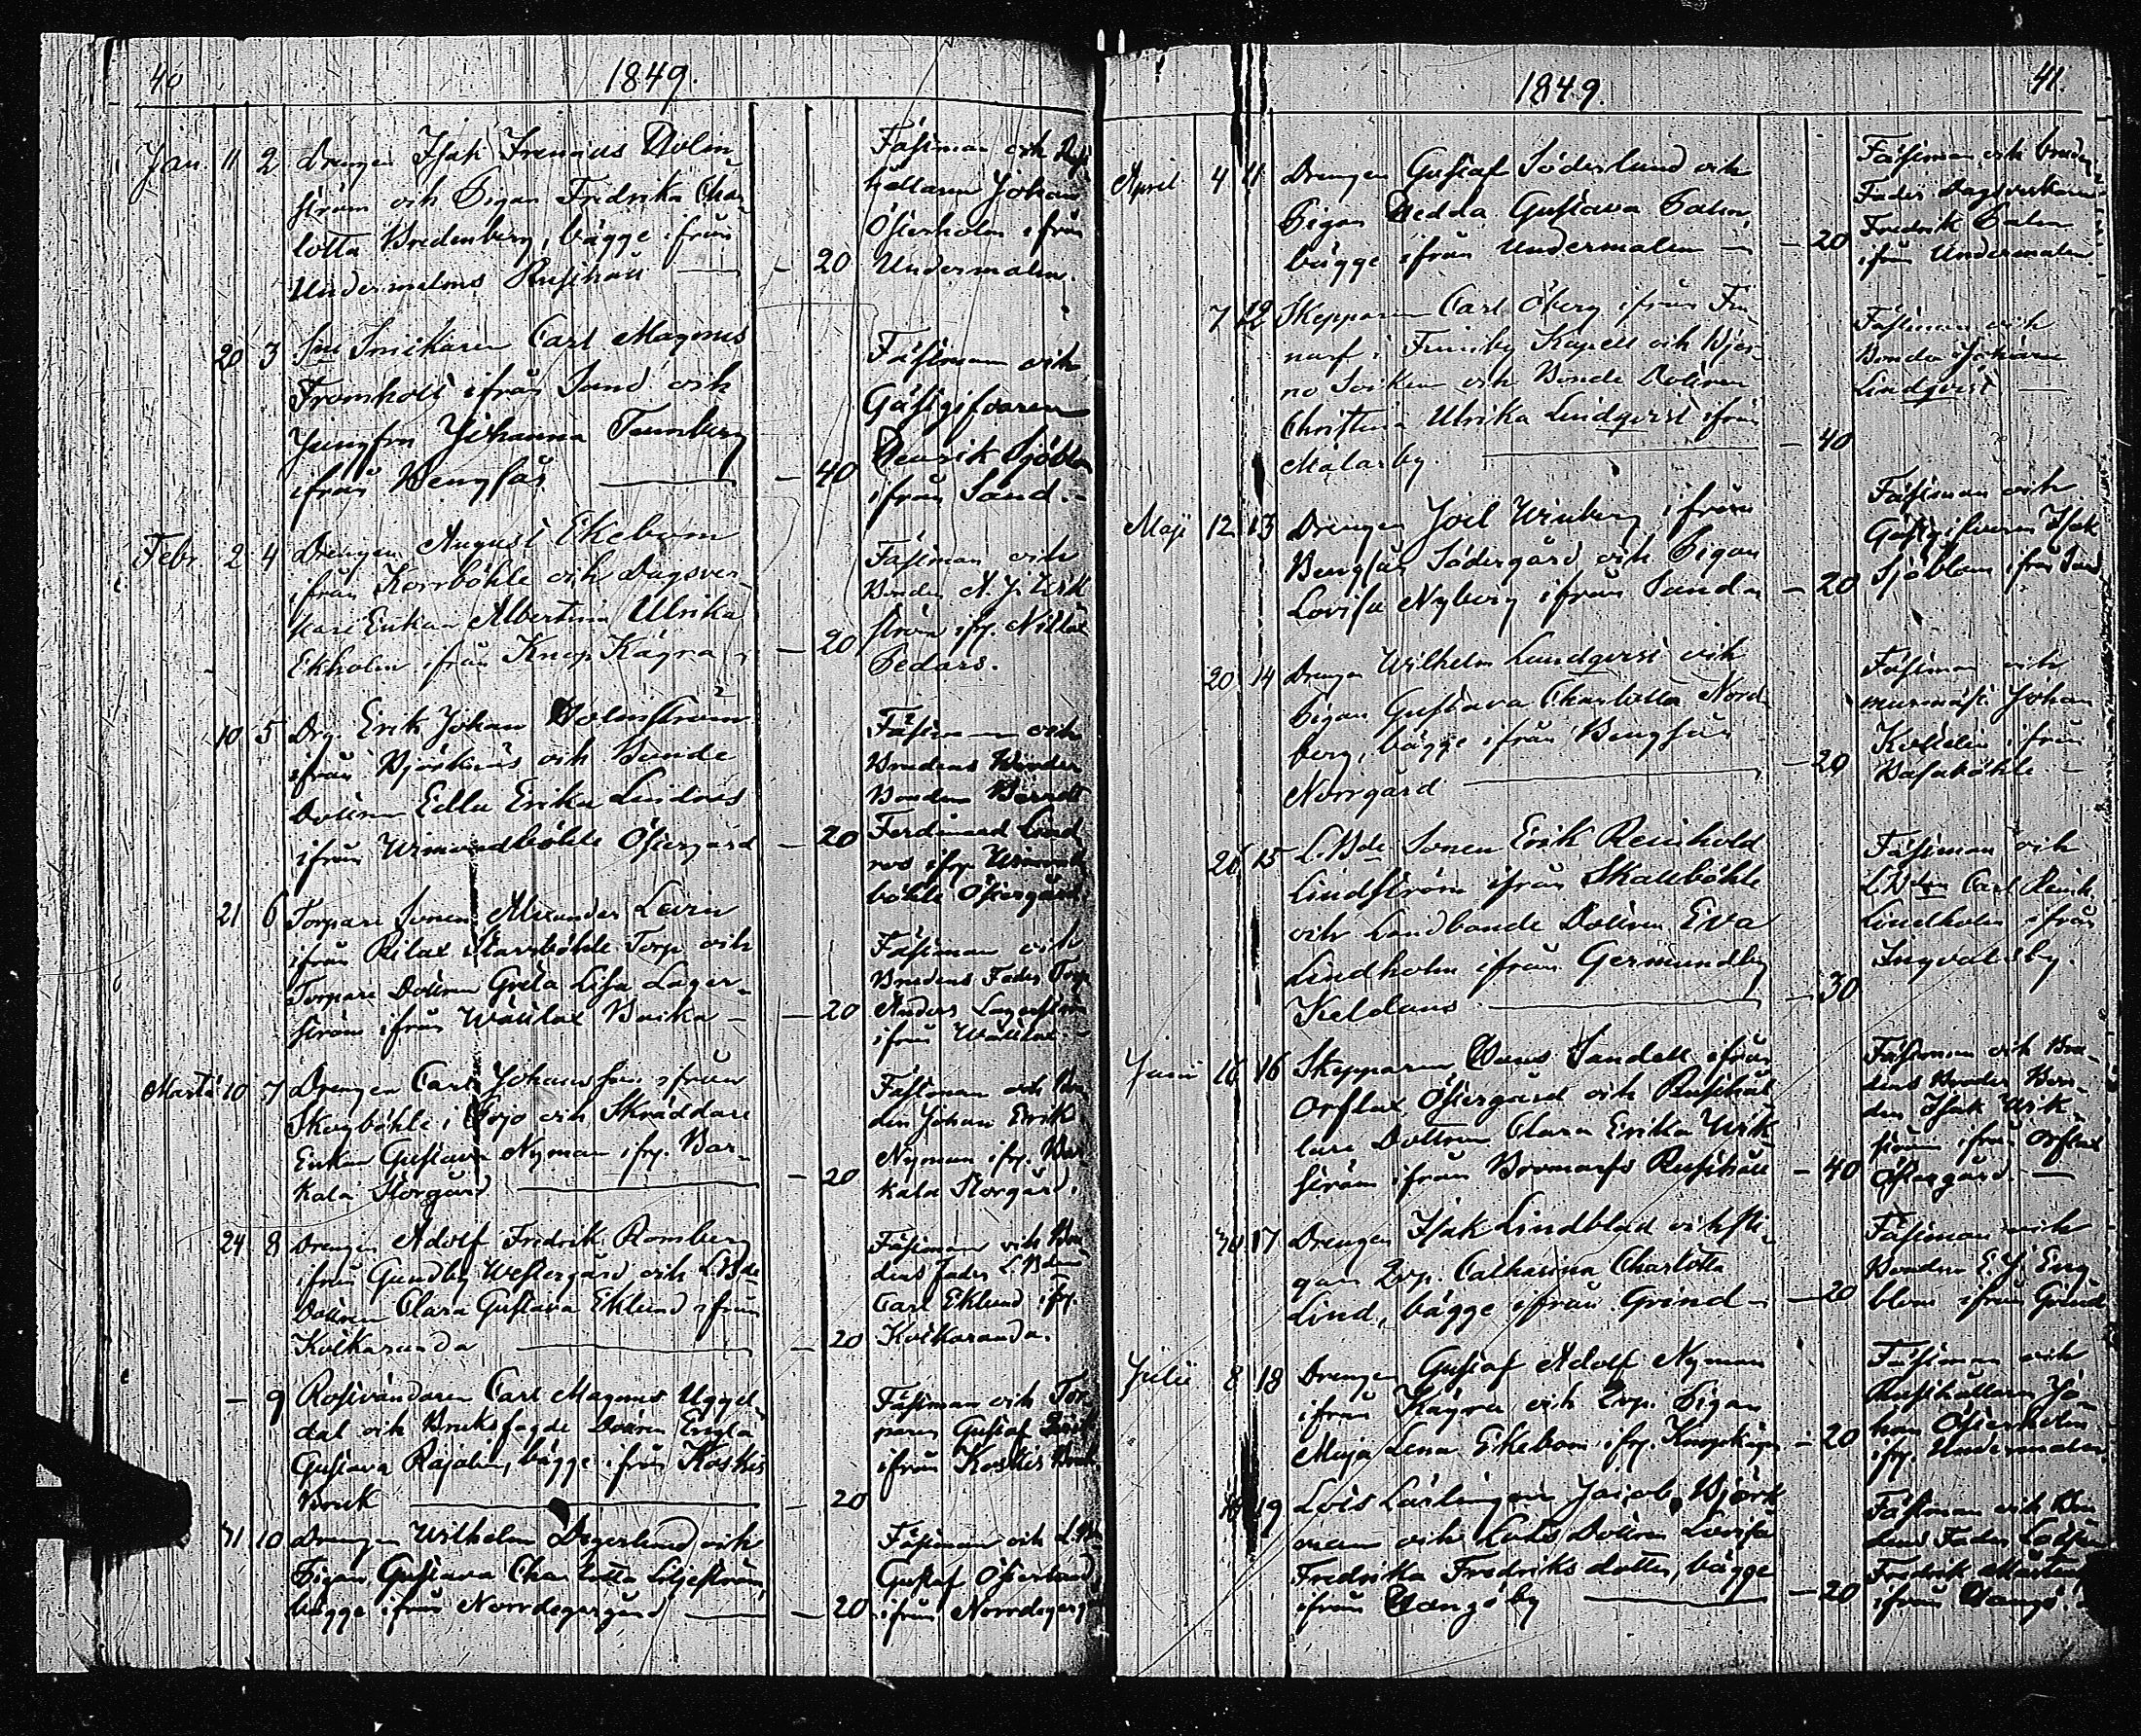 40
1849.
Jan. 11 2 Drengen Isak Irenæus Holm-
ström och Pigan Fredrika Char-
lotta Bredenberg, bägge ifrån
Undermalms Rusthåll — 20
Fästman och Rust-
hållaren Johan
Österholm ifrån
Undermalm.
20 3 Carl Magnus
Fromholt ifrån Sand och
Jungfru Johanna Tennberg
ifrån Bengtsår — 40
Fästman och
Gästgifvaren
Henrik Sjöblom
ifrån Sand.
Febr. 2 4 Drengen August Ekebom
ifrån Korrböhle och Dagsver-
kare Enkan Albertina Ulrika
Ekholm ifrån Knop Kägra — 20
Fästman och
Bonden A. J.
ström ifr.
Bedars.
10 5 Drg. Erik Johan Holmström
ifrån Björknäs och Bonde
Dottren Edla Erika Lindros
ifrån Wimondböhle Östergård — 20
Fästman och
Brudens Broder
Bonden Berndt
Ferdinand Lind-
ros ifr.
böhle Östergård.
21 6 Torpare Sonen Alexander Levin
ifrån Rilax Starrböhle Torp och
Torpare Dottren Greta Lisa Lager-
ström ifrån Wättlax — 20
Fästman och
Brudens Fader Torp.
Anders Lagerström
ifrån Wättlax.
Martii 10 7 Drengen Carl Johansson ifrån
Skogböhle i Pojo och Skräddare
Enkan Gustava Nyman ifr. Bar-
kala Storgård — 20
Fästman och Bon-
den Johan Erik
Nyman ifr. Bar-
kala Storgård.
24 8 Drengen Adolf Fredrik Romberg
ifrån Gundby Westergård och L.Bde
Dottren Clara Gustava Eklund ifrån
Koikaranda — 20
Fästman och Bru-
dens Fader L.Bden
Carl Eklund ifr.
Koikaranda.
— 9 Rostvändaren Carl Magnus Uggel-
dal och Bruksfogde Dottren Engla
Gustava Rajalin, bägge ifrån Koskis
Bruk — 20
Fästman och Tor-
paren Gustaf
ifrån Koskis Bruk
31 10 Drengen Wilhelm Degerlund och
Pigan Gustava Charlotta Liljeström,
bägge ifrån Norrdegergård — 20
Fästman och
Gustaf Österlund
ifrån
41.
1849.
April 4 11 Drengen Gustaf Söderlund och
Pigan Hedda Gustava Palm,
bägge ifrån Undermalm — 20
Fästman och Brudens
Fader Dagsverkaren
Fredrik Palm
ifrån Undermalm
7 12 Skepparen Carl Öberg ifrån Fin-
narf i Finnby Kapell och Bjer-
no Socken och Bonde Dottren
Christina Ulrika Lindqvist ifrån
Målarby. — 40
Fästman och
Bonden Johan
Lindqvist —
Maji 12 13 Drengen Joel Winberg ifrån
Bengtsår Södergård och Pigan
Lovisa Nyberg ifrån Sand — 20
Fästman och
Gästgifvaren Isak
Sjöblom ifrån Sand
20 14 Drengen Wilhelm Lundqvist och
Pigan Gustava Charlotta Nord-
berg, bägge ifrån Bengtsår
Norrgård — 20
Fästman och
murmäst. Johan
ifrån
Basaböhle —
26 15 L.Bde Sonen Erik Reinhold
Lindström ifrån Skallböhle
och Landbonde Dottren Eva
Lindholm ifrån Germundby
Keldans — 30
Fästman och
L.Bden Carl Reinh.
Lindholm ifrån
Ingvaldsby.
Junii 16 16 Skepparen Claes Sandell ifrån
Orslax Östergård och Rusthål-
lare Dottren Clara Erika Wik-
ström ifrån Bromarfs Rusthåll — 40
Fästman och Bru-
dens Broder Bon-
den Isak Wik-
ström ifrån Orslax
Östergård. —
30 17 Drengen Isak Lindblad och Pi-
gan Catharina Charlotta
Lind, bägge ifrån Grind — 20
Fästman och
Bonden E. J. Eng-
blom ifrån Grind
Julii 8 18 Drengen Gustaf Adolf Nyman
ifrån Kägra och Pigan
Maja Lena Ekebom ifr. Knopkägra — 20
Fästman och
Rusthållaren Jo-
han Österholm
ifr. Undermalm.
19 Lots Lärlingen Jacob Björk-
man och Lots Dottren Lovisa
Fredrika Fredriksdotter, bägge
ifrån Hangöby — 20
Fästman och Bru-
dens Fader Lotsen
Fredrik
ifrån Hangö.